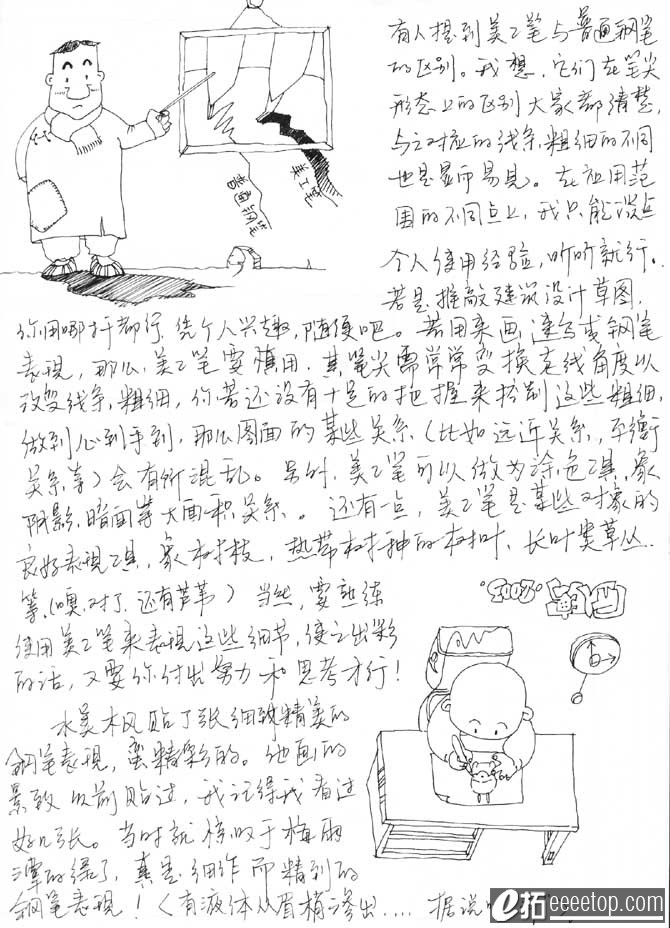 有人提到美工笔与普通钢笔
的区别。我想,它们在笔尖
形态上的区别大家都清楚,
与之对应的线条,粗细的不同
也是显而易见。在应用范
围的不同点上,我只能谈点
个人使用经验,听听就行。
若是推敲建筑设计草图,
普通钢笔
美工笔
你用哪杆都行,凭个人兴趣,随便吧。若用来画速写或钢笔
表现,那么,美工笔要慎用,其笔尖需常常变换走线角度以
改变线条,粗细,你若还没有十足的把握来控制这些粗细,
做到心到手到,那么图面的某些关系(比如远近关系,平衡
关系等)会有所混乱。另外,美工笔可以做为涂色工具,象
阴影,暗面等大面积关系。还有一点,美工笔是某些对象的
良好表现工具,象树枝,热带树种的树叶、长叶类草丛
等,(噢,对了,还有芦苇)当然,要熟练
使用美工笔来表现这些细节,使之出彩
的话,又要你付出努力和思考才行!
2007
水美木风贴了张细致精美的
钢笔表现,蛮精彩的。他画的
景致以前贴过,我记得我看过
好几张。当时就惊叹于梅雨
潭的绿了,真是细作而精到的
钢笔表现!(有液体从眉梢渗出....据说
e拓 eeeetop.com